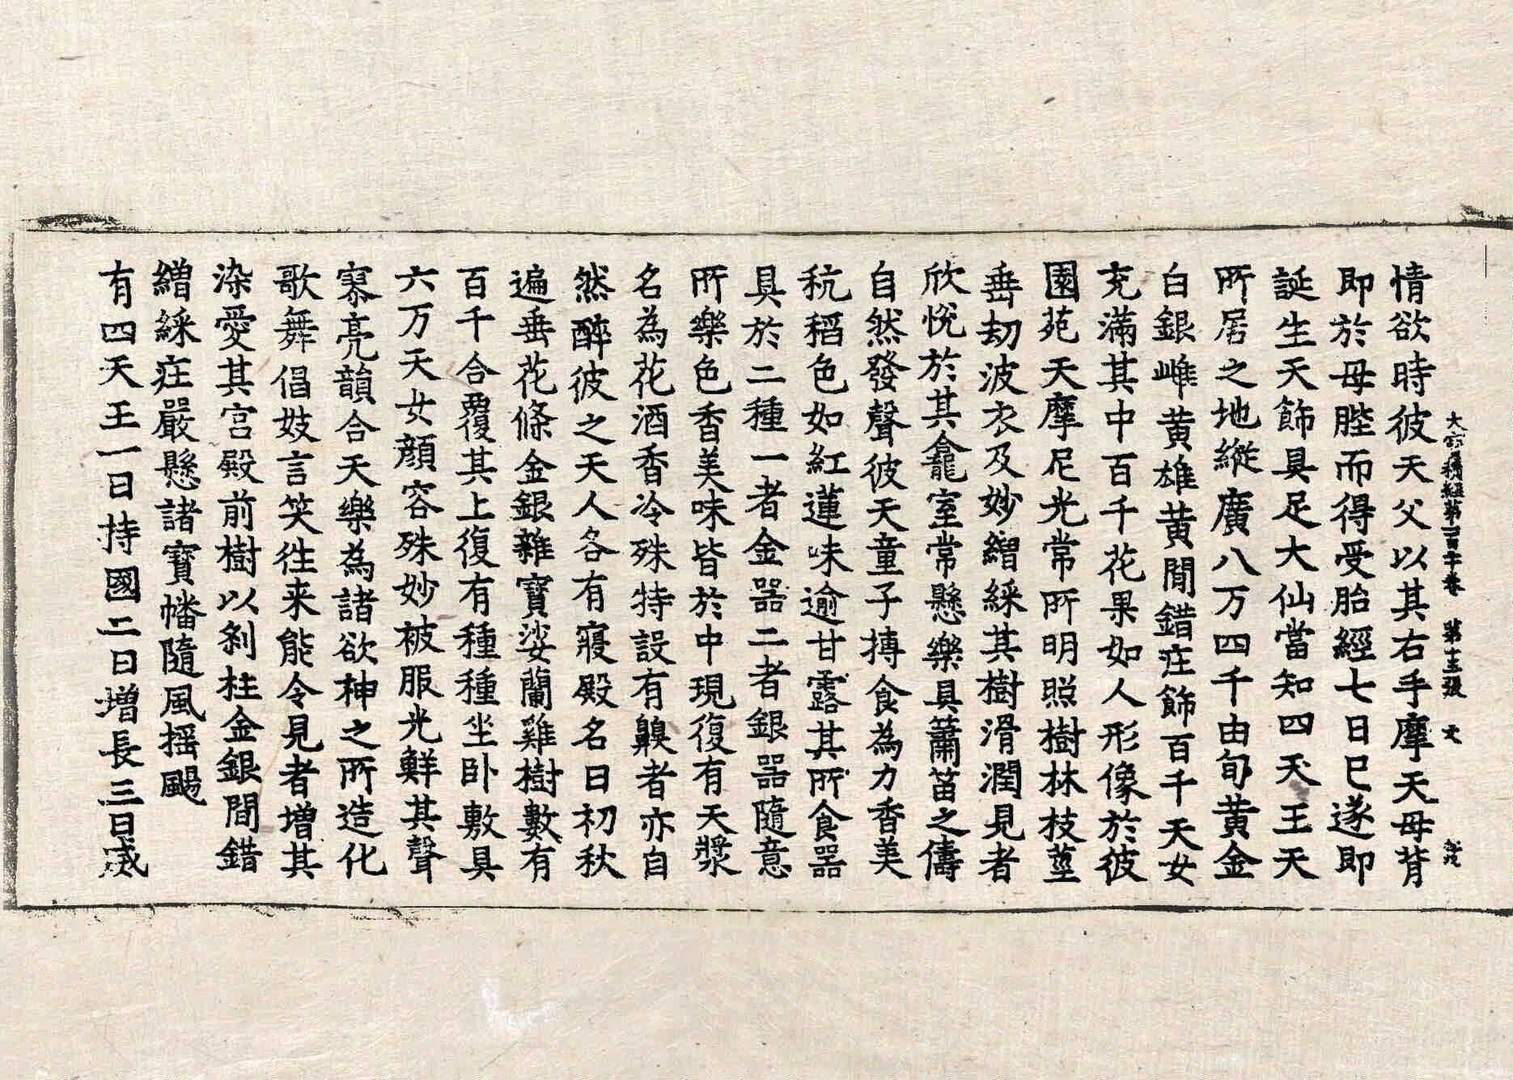 大寶積經第一百十卷 第十三張 文
情欲時彼天父以其右手摩天母背
即於母䏶而得受胎經七日已遂即
誕生天飾具足大仙當知四天王天
所居之地縱廣八万四千由旬黄金
白銀雌黄雄黄間錯庄飾百千天女
充滿其中百千花果如人形像於彼
園苑天摩尼光常所明照樹林枝莖
垂刧波衣及妙繒綵其樹滑潤見者
欣悅於其龕室常懸樂具簫笛之儔
自然發聲彼天童子摶食為力香美
秔稻色如紅蓮味逾甘露其所食器
具於二種一者金器二者銀器隨意
所樂色香美味皆於中現復有天漿
名為花酒香冷殊特設有齅者亦自
然醉彼之天人各有寢殿名日初秋
遍垂花條金銀雜寶娑蘭雞樹數有
百千合覆其上復有種種坐卧敷具
六万天女顔容殊妙被服光鮮其聲
寥亮韻合天樂為諸欲神之所造化
歌舞倡妓言笑往来能令見者增其
染愛其宫殿前樹以刹柱金銀間錯
繒綵庄嚴懸諸寶幡隨風摇颺
有四天王一日持國二日增長三日威